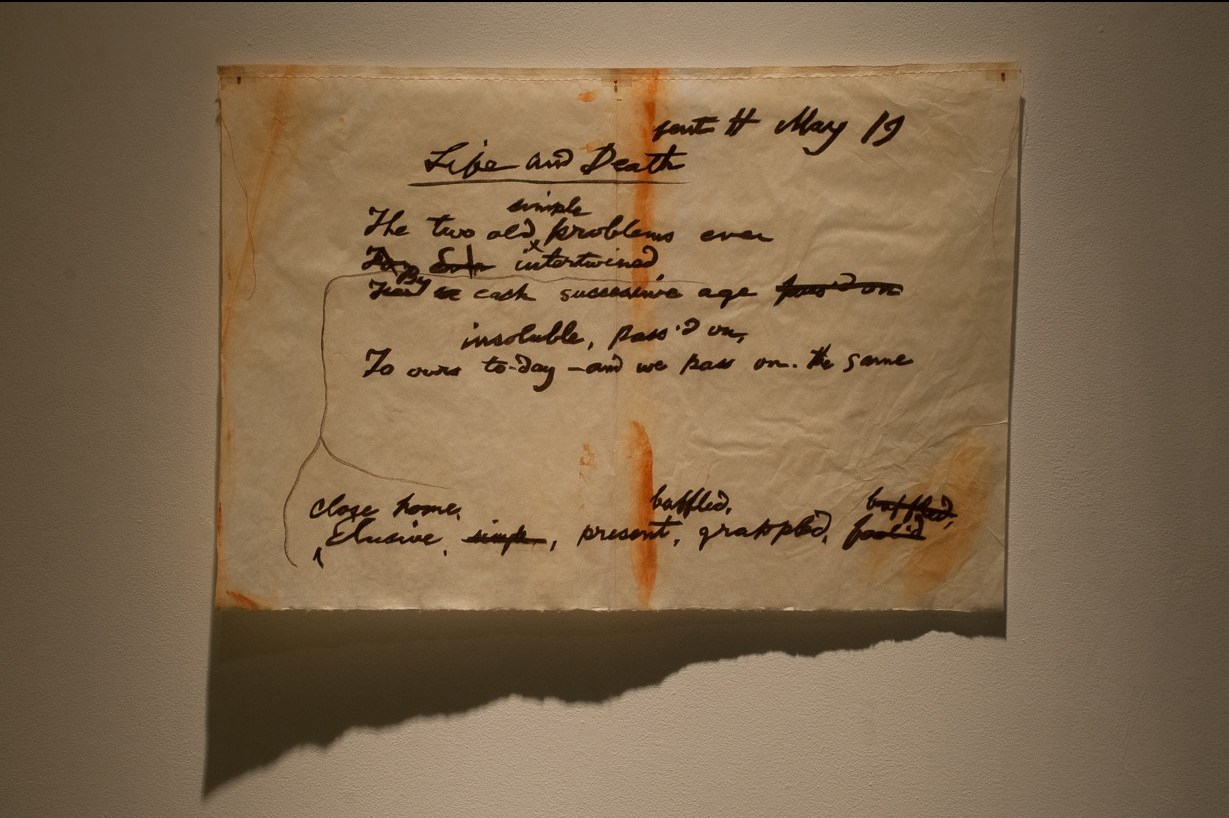 sent H May 19
Life and Death
simple
The two old problems ever
intertwined
By each successive age pass'd on
insoluble, pass'd on,
To ours to-day – and we pass on. the same
close home,
baffled,
baffled,
Elusive, simple, present, grappled, fool'd